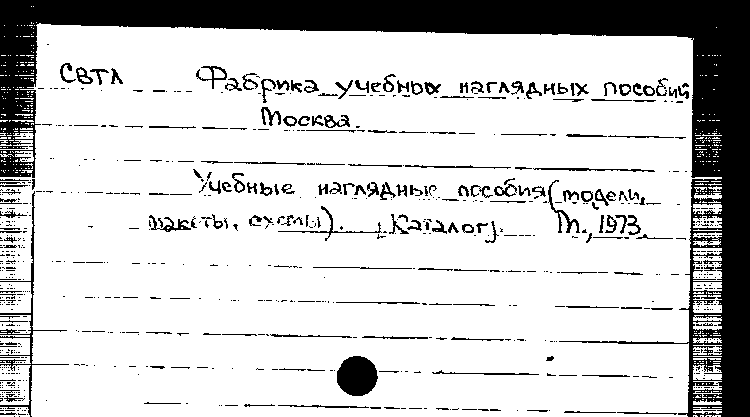 СВТЛ Фабрика учебных наглядных пособий
Москва.
Учебные наглядные пособия (модели,
макеты, схемы). [Каталог]. М., 1973.